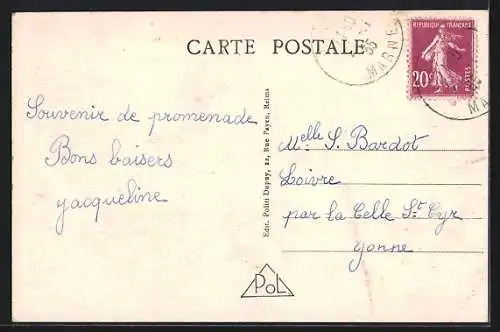 CARTE POSTALE
35
MARNE
REPUBLIQUE FRANÇAISE
20c
POSTES
MA
Souvenir de promenade
Bons baisers
Jacqueline
Edit. Polini Dupuy, 22, Rue Payen, Reims
Melle S. Bardot
Loivre
par la Celle St Cyr
Yonne
POL